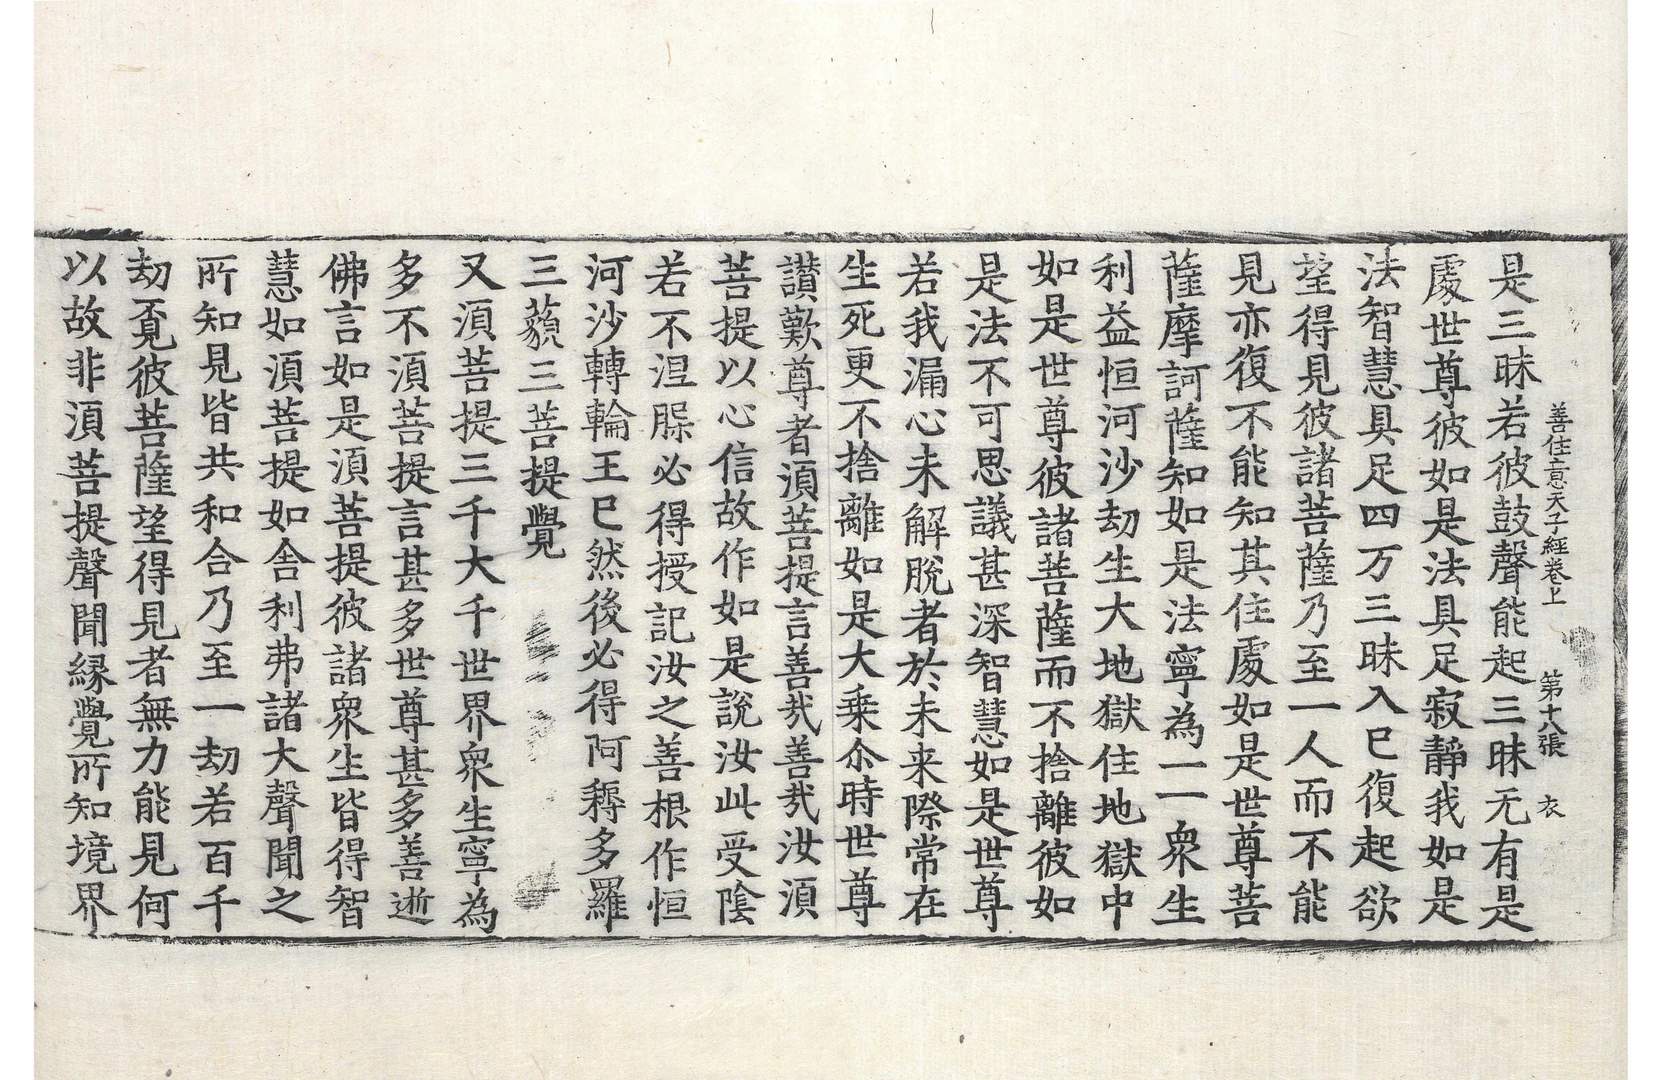 善住意天子經卷上　第十八張　衣
是三昧若彼鼓聲能起三昧无有是
處世尊彼如是法具足寂靜我如是
法智慧具足四万三昧入已復起欲
望得見彼諸菩薩乃至一人而不能
見亦復不能知其住處如是世尊菩
薩摩訶薩知如是法寧為一一衆生
利益恒河沙劫生大地獄住地獄中
如是世尊彼諸菩薩而不捨離彼如
是法不可思議甚深智慧如是世尊
若我漏心未解脫者於未来際常在
生死更不捨離如是大乗尒時世尊
讃歎尊者須菩提言善㢤善㢤汝須
菩提以心信故作如是說汝此受陰
若不涅槃必得授記汝之善根作恒
河沙轉輪王已然後必得阿耨多羅
三藐三菩提覺
又須菩提三千大千世界衆生寧為
多不須菩提言甚多世尊甚多善逝
佛言如是須菩提彼諸衆生皆得智
慧如須菩提如舎利弗諸大聲聞之
所知見皆共和合乃至一劫若百千
劫覔彼菩薩望得見者無力能見何
以故非須菩提聲聞縁覺所知境界